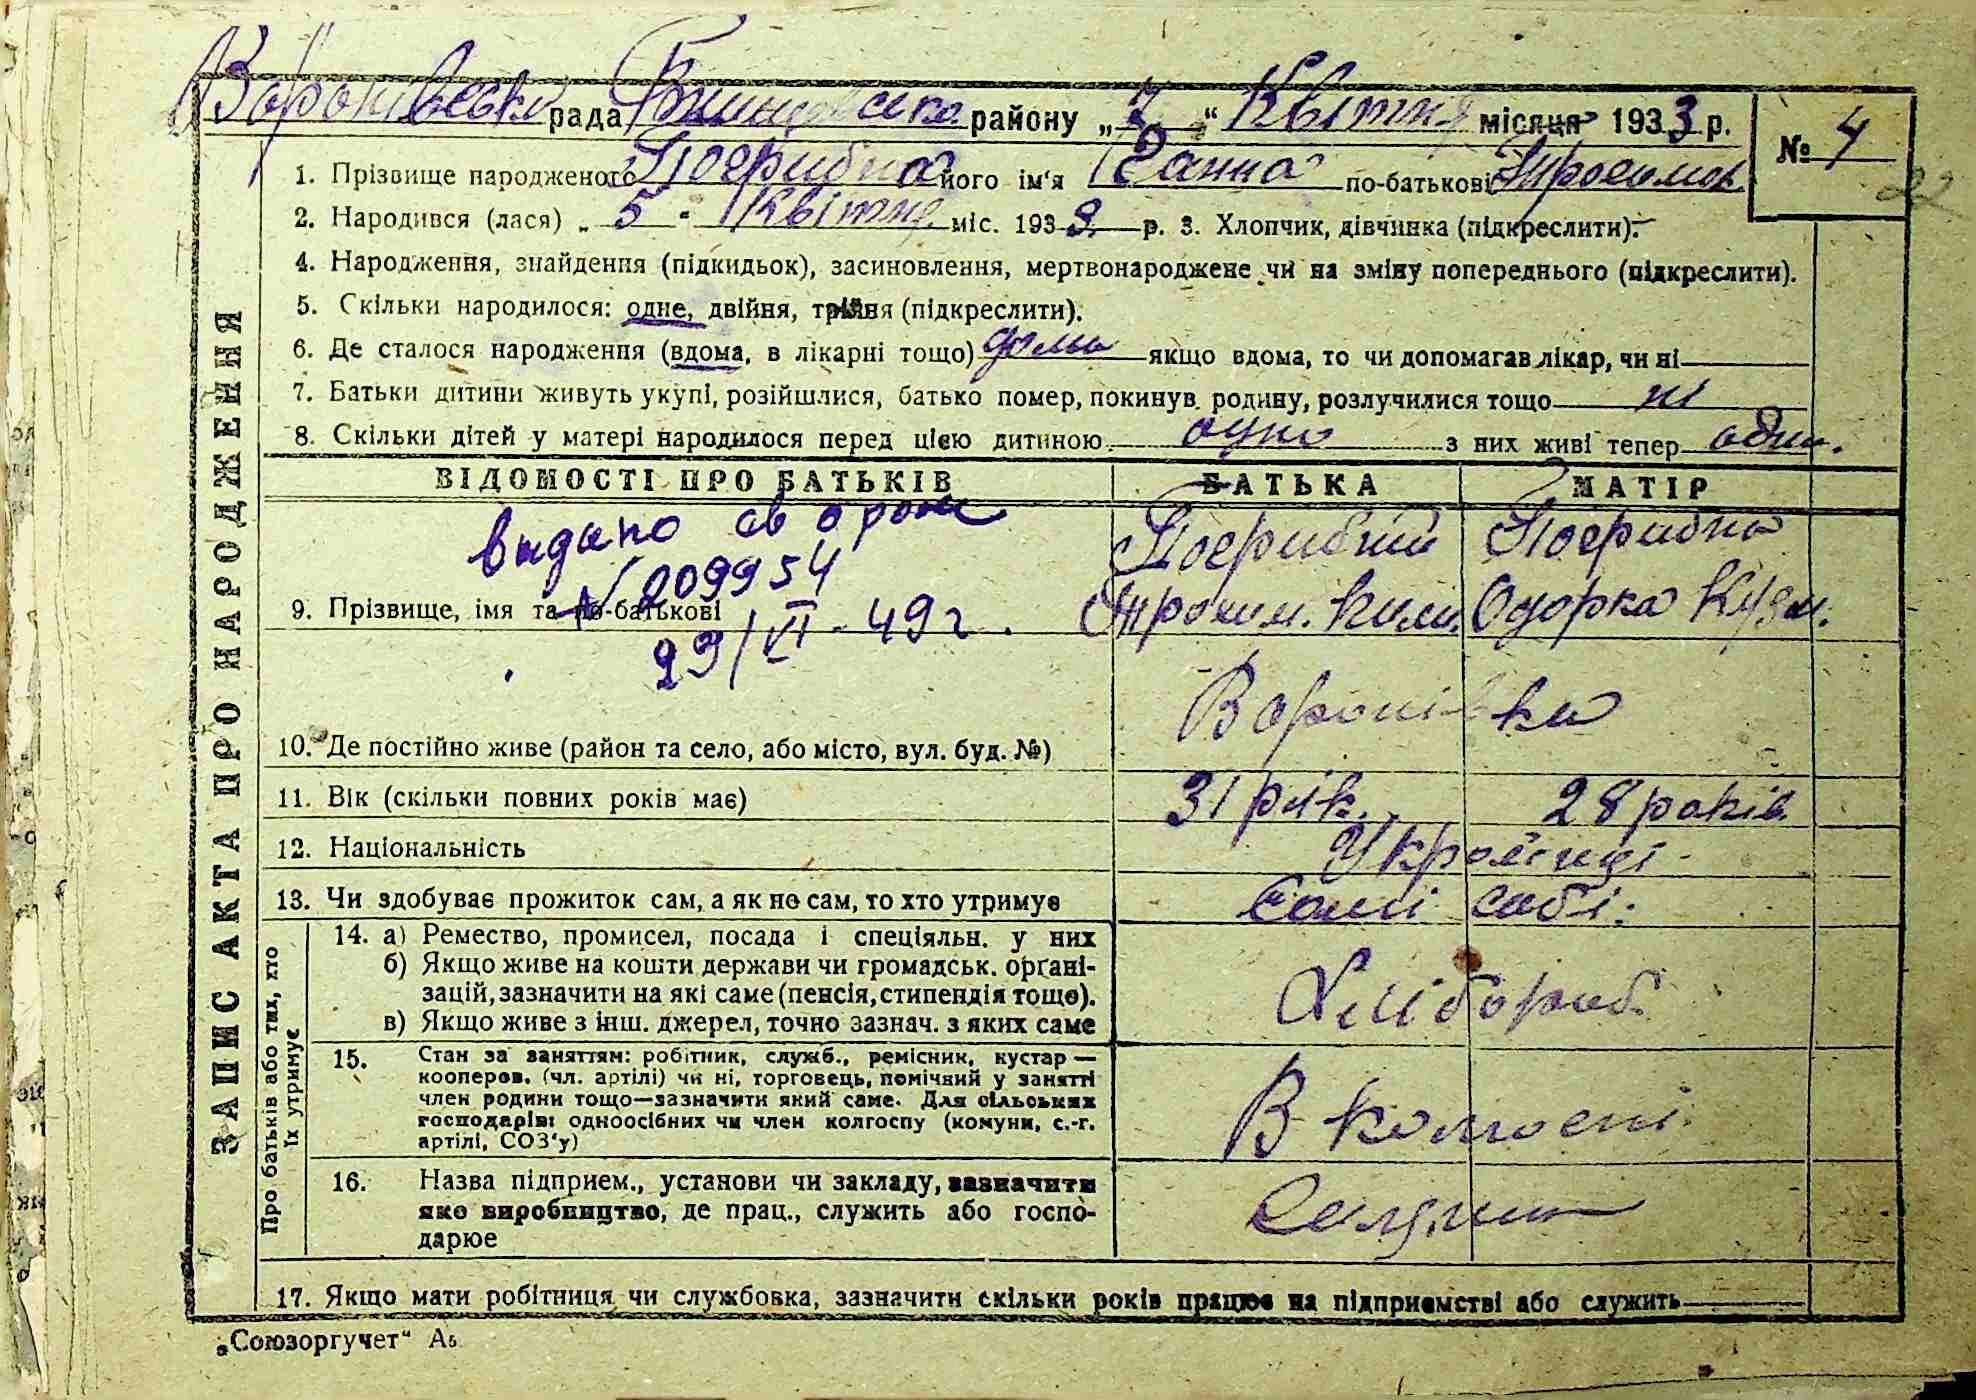 Воронівська рада району „7“ Квітня місяця 1933 р.
№ 4
22
1. Прізвище народженого Погрибна його ім‘я Ганна по-батькові
2. Народився (лася) „ 5 “ Квітня міс. 1933 р. 3. Хлопчик, дівчинка (підкреслити).
4. Народження, знайдення (підкидьок), засиновлення, мертвонароджене чи на зміну попереднього (підкреслити).
5. Скільки народилося: одне, двійня, трійня (підкреслити).
6. Де сталося народження (вдома, в лікарні тощо) дома якщо вдома, то чи допомагав лікар, чи ні
7. Батьки дитини живуть укупі, розійшлися, батько помер, покинув родину, розлучилися тощо ні
8. Скільки дітей у матері народилося перед цією дитиною одно з них живі тепер одно.
ВІДОМОСТІ ПРО БАТЬКІВ БАТЬКА МАТІР
видано св о рож
№ 209954
29/VI - 49 г.
9. Прізвище, імя та по-батькові
Погрибний
Трохим. Ким.
Погрибна
Одарка Кузм.
10. Де постійно живе (район та село, або місто, вул. буд. №) Воронівка
11. Вік (скільки повних років має) 31 рік. 28 років.
12. Національність Українці.
13. Чи здобуває прожиток сам, а як не сам, то хто утримує Самі собі.
14. а) Ремество, промисел, посада і спеціяльн. у них
б) Якщо живе на кошти держави чи громадськ. орґані-
зацій, зазначити на які саме (пенсія, стипендія тощо).
в) Якщо живе з інш. джерел, точно зазнач. з яких саме
Хлібороб.
15. Стан за заняттям: робітник, служб., ремісник, кустар —
кооперов. (чл. артілі) чи ні, торговець, помічний у занятті
член родини тощо—зазначити який саме. Для сільських
господарів: одноосібних чи член колгоспу (комуни, с.-г.
артілі, СОЗ‘у)
В колгоспі.
16. Назва підприєм., установи чи закладу, зазначити
яко виробництво, де прац., служить або госпо-
дарює
17. Якщо мати робітниця чи службовка, зазначити скільки років працює на підприємстві або служить
ЗАПИС АКТА ПРО НАРОДЖЕННЯ
Про батьків або тих, хто
їх утримує
„Союзоргучет“ А5